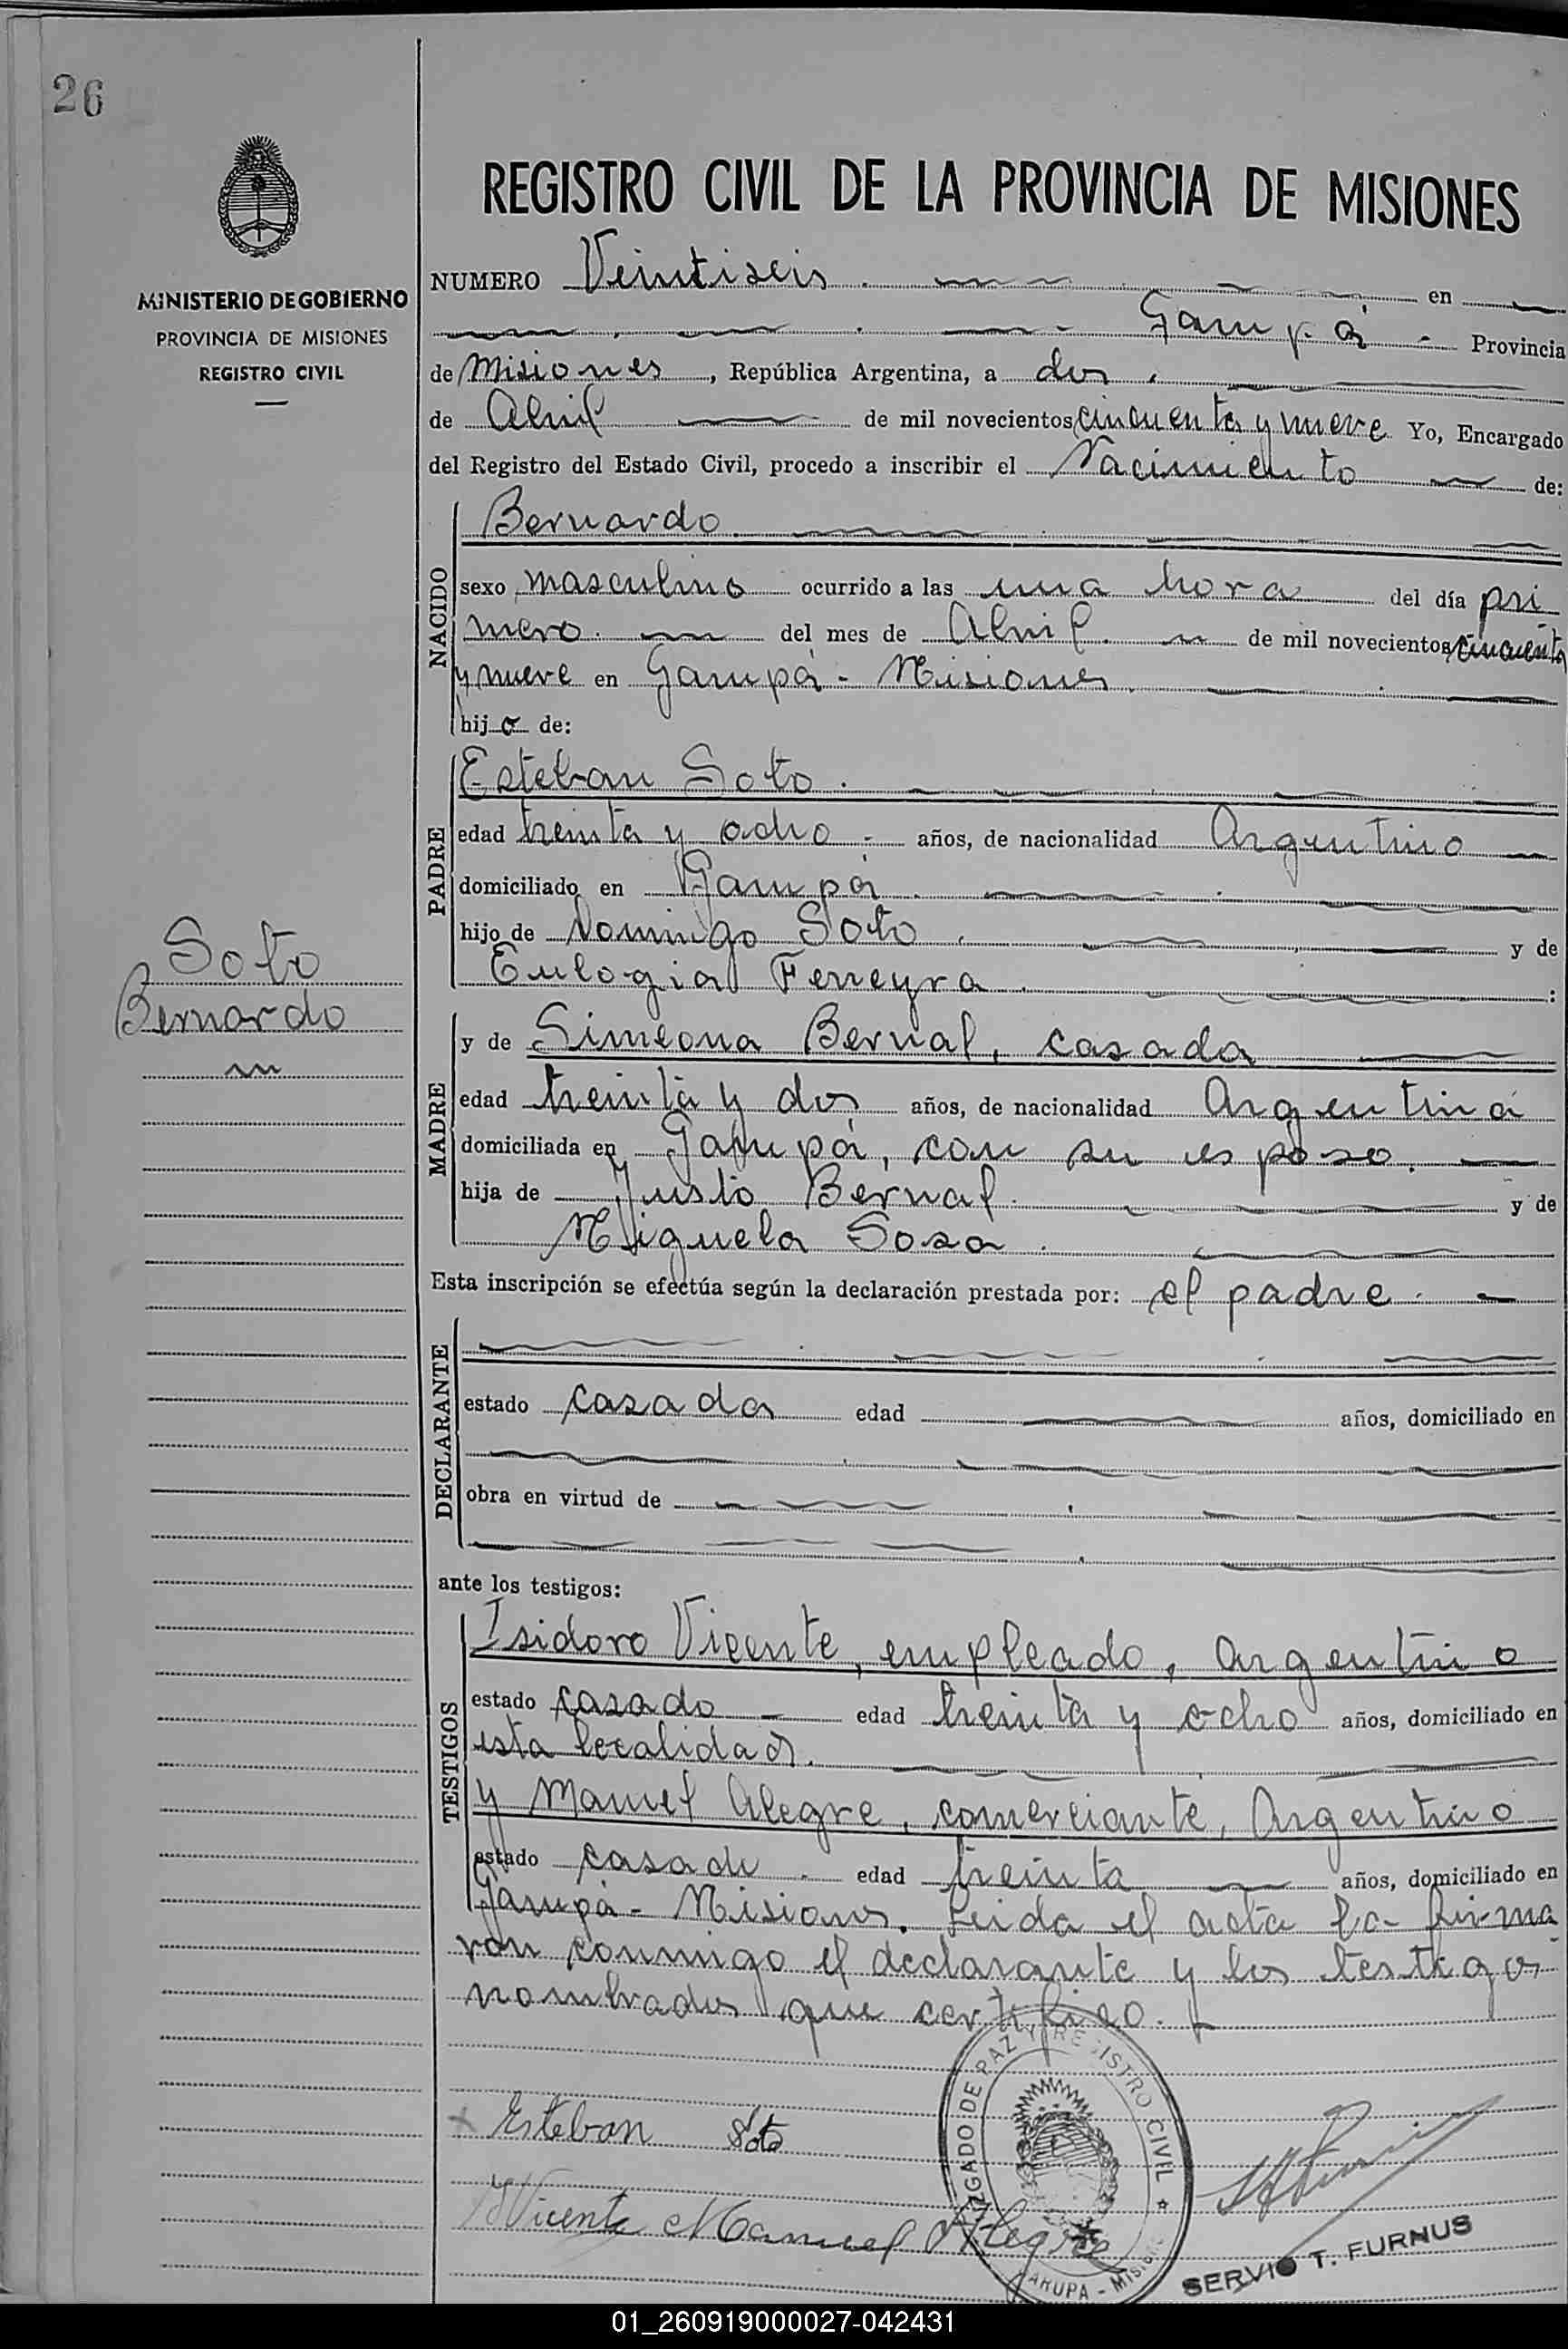 26
REGISTRO CIVIL DE LA PROVINCIA DE MISIONES
MINISTERIO DE GOBIERNO
PROVINCIA DE MISIONES
REGISTRO CIVIL
NUMERO Veintiseis en
Garupá - Provincia
de Misiones, República Argentina, a dos
de Abril de mil novecientos cincuenta y nueve Yo, Encargado
del Registro del Estado Civil, procedo a inscribir el Nacimiento de:
NACIDO
Bernardo
sexo masculino ocurrido a las una hora del día pri
mero del mes de Abril de mil novecientos cincuenta
y nueve en Garupá - Misiones
hijo de:
PADRE
Esteban Soto.
edad treinta y ocho años, de nacionalidad Argentino
domiciliado en Garupá
hijo de Domingo Soto y de
Eulogia Ferreyra :
Soto
Bernardo
MADRE
y de Simeona Bernal, casada
edad treinta y dos años, de nacionalidad Argentina
domiciliada en Garupá, con su esposo.
hija de Justo Bernal y de
Miguela Sosa.
Esta inscripción se efectúa según la declaración prestada por: el padre.
DECLARANTE
estado casado edad años, domiciliado en
obra en virtud de
ante los testigos:
TESTIGOS
Isidoro Vicente, empleado, argentino
estado casado edad treinta y ocho años, domiciliado en
esta localidad.
y Manuel Alegre, comerciante, Argentino
estado casado edad treinta años, domiciliado en
Garupá - Misiones. Leida el acta la firma
ron conmigo el declarante y los testigos
nombrados que certifico.
Esteban Soto
Vicente Manuel Alegre
JUZGADO DE PAZ Y REGISTRO CIVIL
GARUPA - MISIONES
SERVIO T. FURNUS
01_260919000027-042431